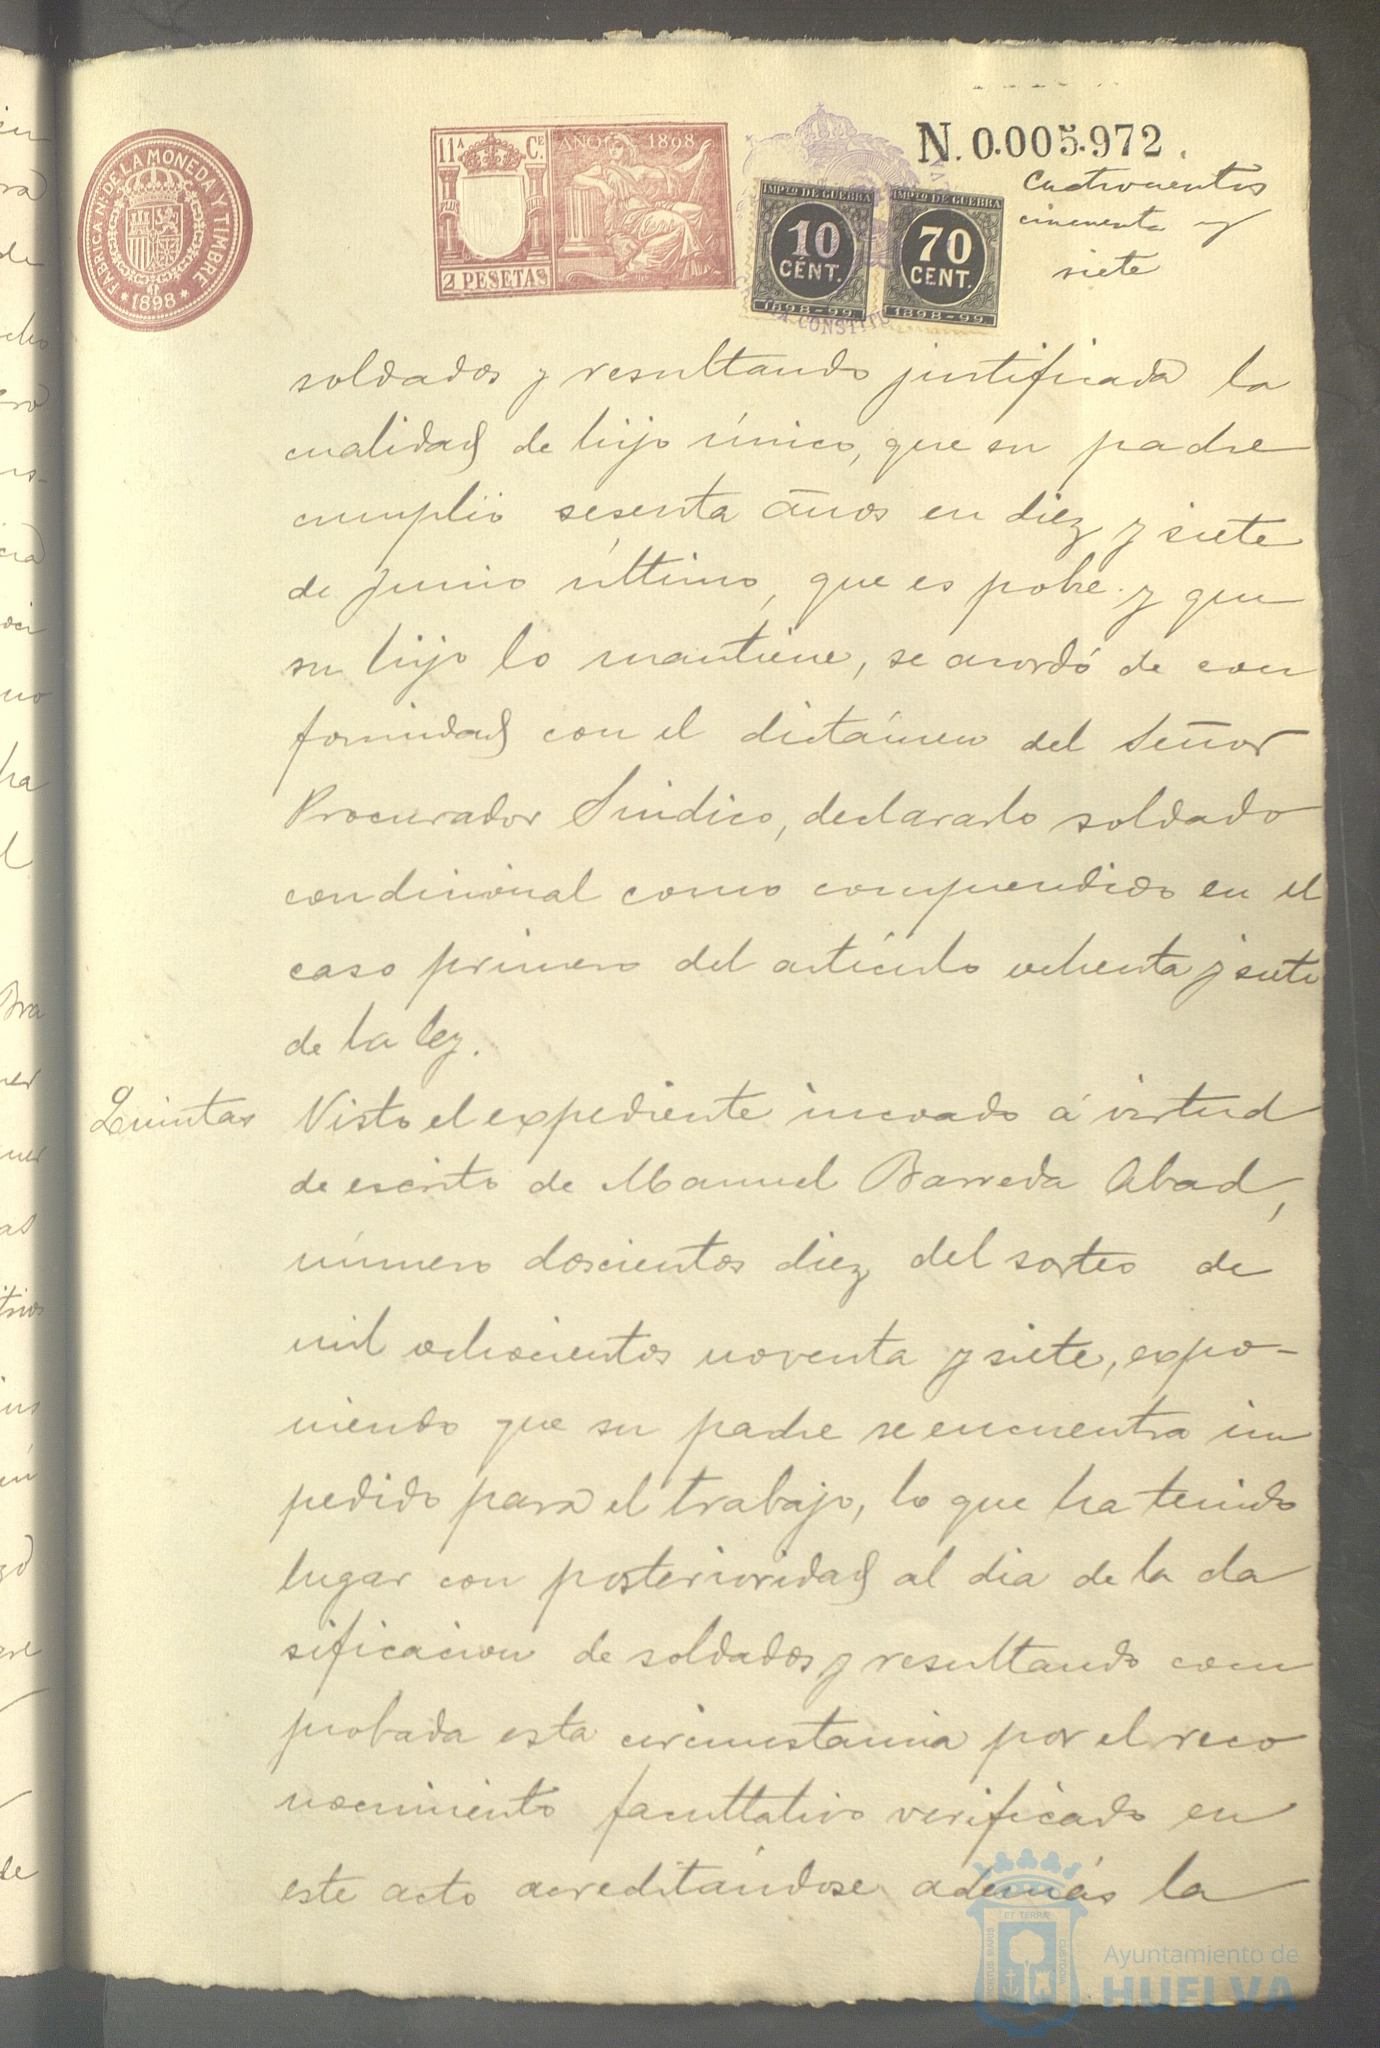 FABRICA N. DE LA MONEDA Y TIMBRE
1898
11ª Cᴱ
AÑO 1898
2 PESETAS
IMPTO DE GUERRA
10
CÉNT.
1898-99
IMPTO DE GUERRA
70
CENT.
1898-99
CONSTITU
N. 0.005.972
Cuatrocientos
cincuenta y
siete
soldados y resultando justificada la
cualidad de hijo único, que su padre
cumplió sesenta años en diez y siete
de junio último, que es pobre y que
su hijo lo mantiene, se acordó de con
formidad con el dictámen del Señor
Procurador Sindico, declararlo soldado
condicional como comprendido en el
caso primero del artículo ochenta y siete
de la ley.
Quintas
Visto el expediente incoado á virtud
de escrito de Manuel Barreda Abad,
número doscientos diez del sorteo de
mil ochocientos noventa y siete, expo-
niendo que su padre se encuentra im
pedido para el trabajo, lo que ha tenido
lugar con posterioridad al dia de la cla
sificacion de soldados y resultando com
probada esta circunstancia por el reco
nocimiento facultativo verificado en
este acto acreditándose además la
PORTUS MARIS ET TERRÆ CUSTODIA
Ayuntamiento de
HUELVA